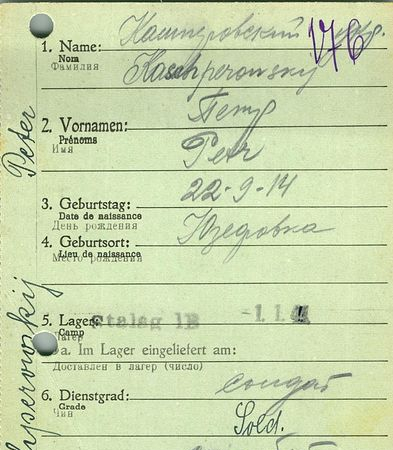 176
1. Name: Кашперовский
Nom
Фамилия
Kaschperowsky
2. Vornamen: Петр
Prénoms
Имя
Petr
3. Geburtstag: 22-9-14
Date de naissance
День рождения
4. Geburtsort: Юзефовка
Lieu de naissance
Место рождения
5. Lager: Stalag IB -1.1.4
Camp
Лагер
5a. Im Lager eingeliefert am:
Доставлен в лагер (число)
6. Dienstgrad: солдат
Grade
Чин
Sold.
Peter
yperowskij